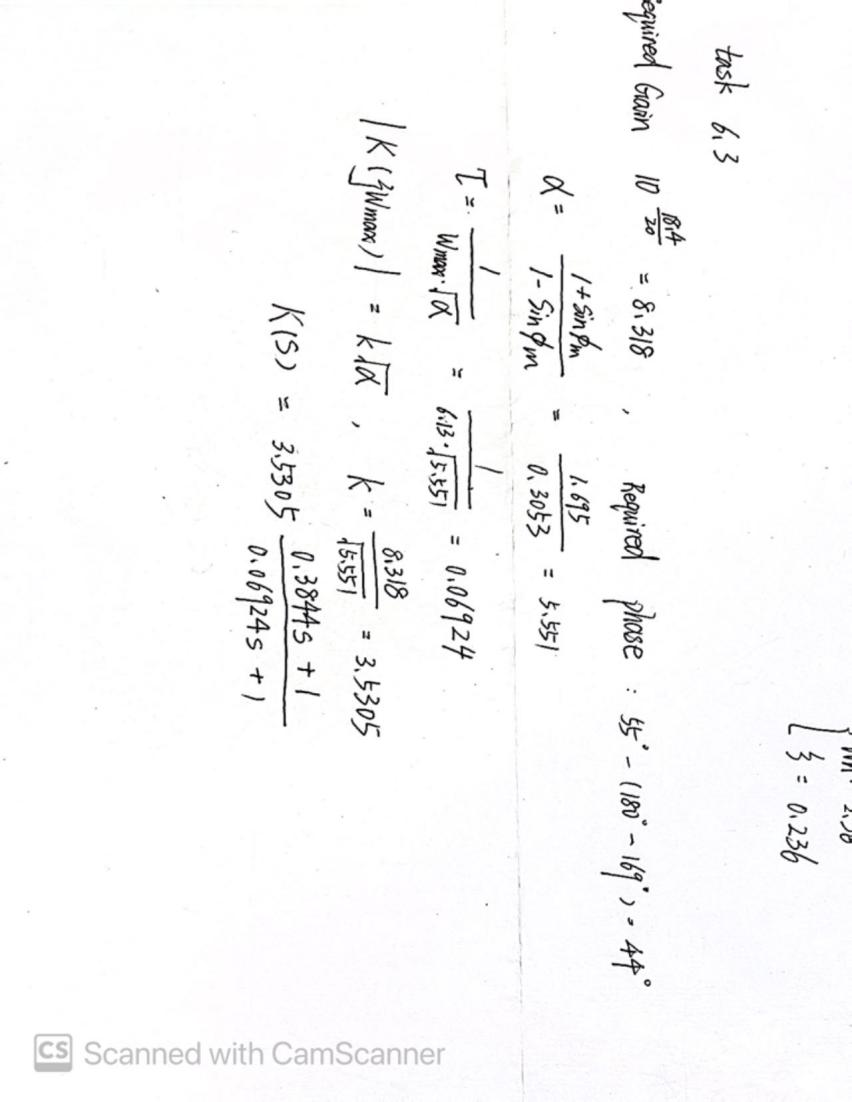 ξ = 0.236
task 6.3
Required Gain 10^(18.4/20) = 8.318 , Required phase : 55° - (180° - 169°) = 44°
α = (1 + sin φm)/(1 - sin φm) = 1.695/0.3053 = 5.551
τ = 1/(Wmax·√α) = 1/(6.13·√5.551) = 0.06924
|K(jWmax)| = k√α , k = 8.318/√5.551 = 3.5305
K(s) = 3.5305 (0.3844s + 1)/(0.06924s + 1)
CS Scanned with CamScanner